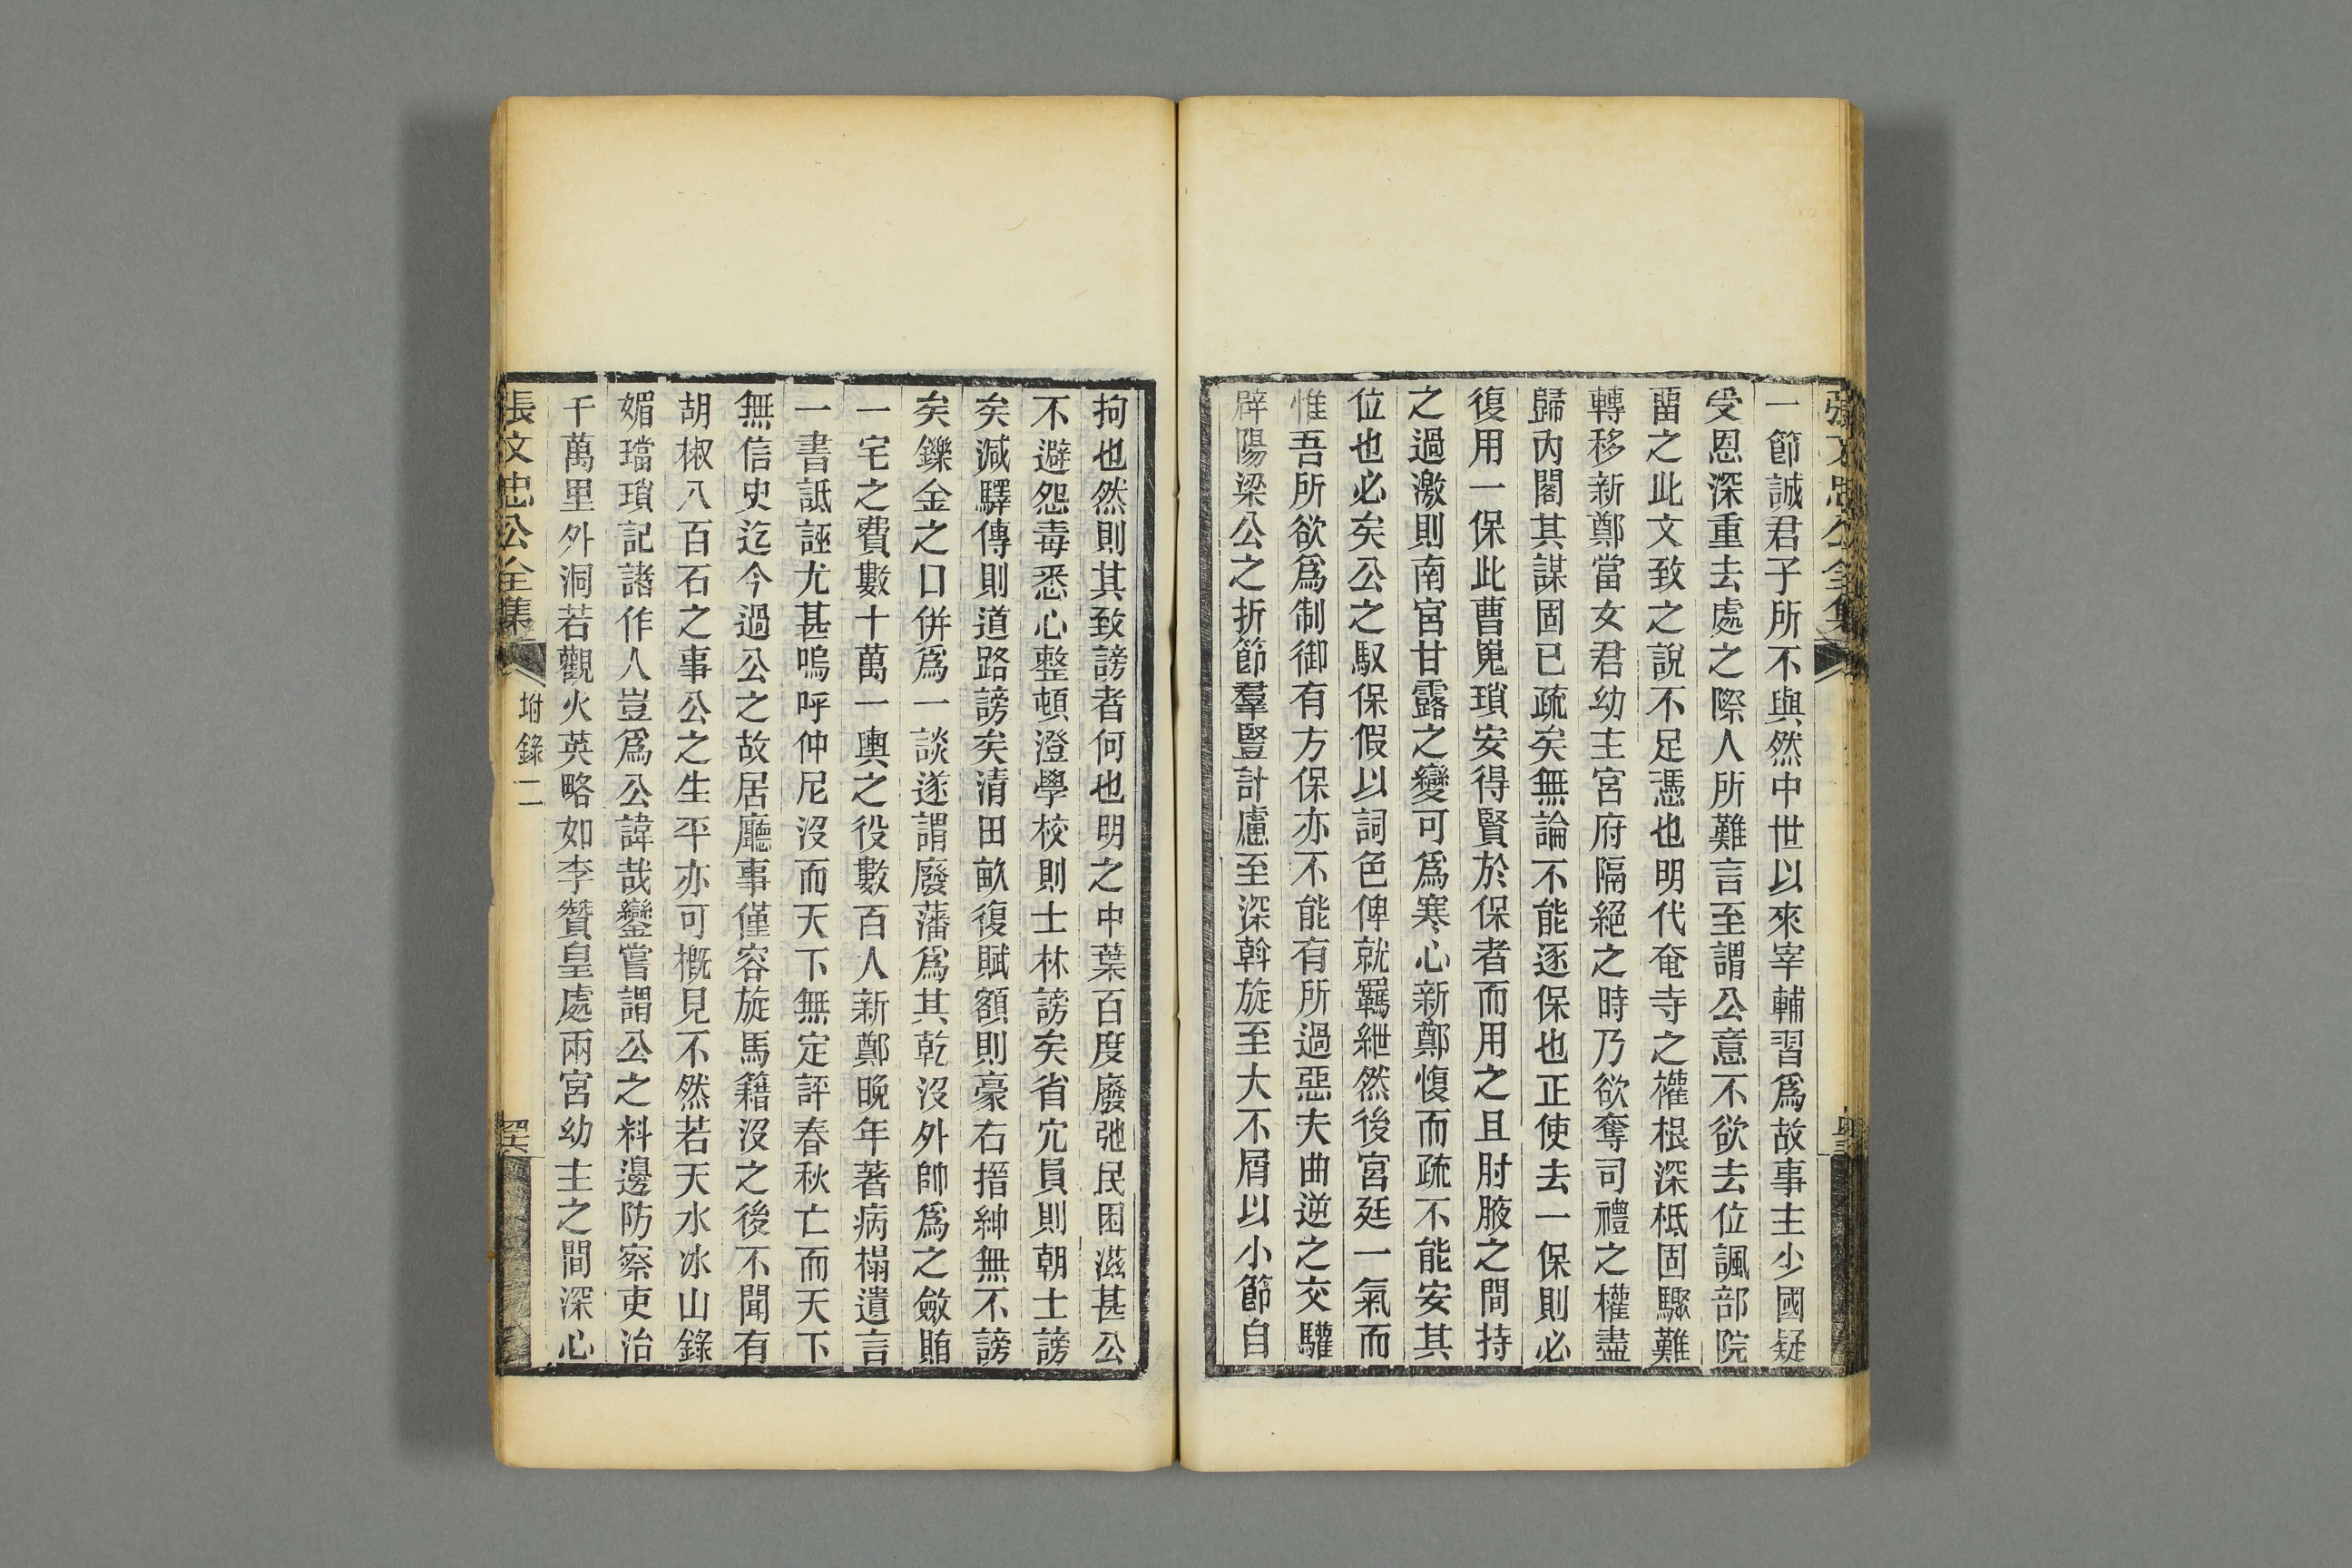 張文忠公全集
一節誠君子所不與然中世以來宰輔習爲故事主少國疑
受恩深重去處之際人所難言至謂公意不欲去位諷部院
畱之此文致之說不足憑也明代奄寺之權根深柢固驟難
轉移新鄭當女君幼主宮府隔絕之時乃欲奪司禮之權盡
歸內閣其謀固已疏矣無論不能逐保也正使去一保則必
復用一保此曹嵬瑣安得賢於保者而用之且肘腋之間持
之過激則南宮甘露之變可爲寒心新鄭愎而疏不能安其
位也必矣公之馭保假以詞色俾就羈紲然後宮廷一氣而
惟吾所欲爲制御有方保亦不能有所過惡夫曲逆之交驩
辟陽梁公之折節羣豎計慮至深斡旋至大不屑以小節自
拘也然則其致謗者何也明之中葉百度廢弛民困滋甚公
不避怨毒悉心整頓澄學校則士林謗矣省冗員則朝士謗
矣減驛傳則道路謗矣清田畝復賦額則豪右搢紳無不謗
矣鑠金之口併爲一談遂謂廢藩爲其乾沒外帥爲之斂賄
一宅之費數十萬一輿之役數百人新鄭晚年著病榻遺言
一書詆誣尤甚嗚呼仲尼沒而天下無定評春秋亡而天下
無信史迄今過公之故居廳事僅容旋馬籍沒之後不聞有
胡椒八百石之事公之生平亦可概見不然若天水冰山錄
媚璫瑣記諸作人豈爲公諱哉鑾嘗謂公之料邊防察吏治
千萬里外洞若觀火英略如李贊皇處兩宮幼主之間深心
張文忠公全集
坿錄二
四六